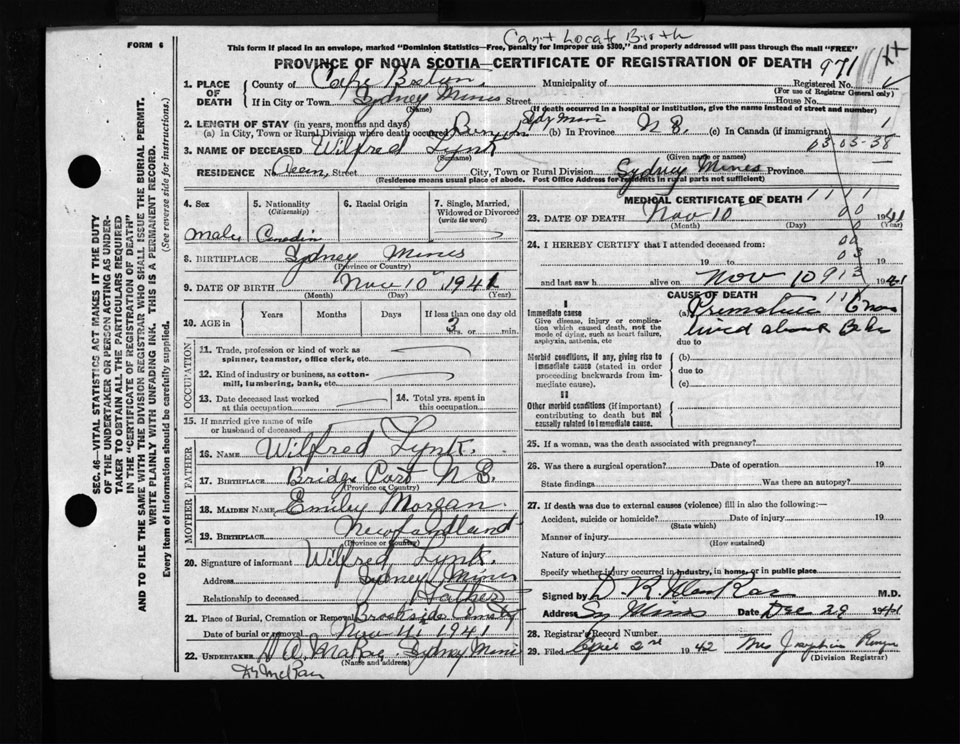 Cant Locate Birth
FORM 6
This form if placed in an envelope, marked "Dominion Statistics—Free, penalty for improper use $300," and properly addressed will pass through the mail "FREE"
PROVINCE OF NOVA SCOTIA—CERTIFICATE OF REGISTRATION OF DEATH 971
1. PLACE OF DEATH
County of Cape Breton Municipality of Registered No.
(For use of Registrar General only)
If in City or Town Sydney Mines Street House No.
(Name) (If death occurred in a hospital or institution, give the name instead of street and number)
2. LENGTH OF STAY (in years, months and days)
(a) In City, Town or Rural Division where death occurred Syd Mines (b) In Province N.B. (c) In Canada (if immigrant) 1
3. NAME OF DECEASED Wilfred Lynk 03-03-38
(Surname) (Given name or names)
RESIDENCE No. Street City, Town or Rural Division Sydney Mines Province
(Residence means usual place of abode. Post Office Address for residents in rural parts not sufficient)
4. Sex
Male
5. Nationality
(Citizenship)
6. Racial Origin
7. Single, Married, Widowed or Divorced
(write the word)
8. BIRTHPLACE Sydney Mines
(Province or Country)
9. DATE OF BIRTH Nov 10 1941
(Month) (Day) (Year)
10. AGE in Years Months Days If less than one day old
3 hrs. or min.
OCCUPATION
11. Trade, profession or kind of work as spinner, teamster, office clerk, etc.
12. Kind of industry or business, as cotton-mill, lumbering, bank, etc.
13. Date deceased last worked at this occupation
14. Total yrs. spent in this occupation
15. If married give name of wife or husband of deceased
FATHER
16. NAME Wilfred Lynk.
17. BIRTHPLACE Bridge Port N.B.
(Province or Country)
MOTHER
18. MAIDEN NAME Emily Morgan
19. BIRTHPLACE Newfoundland
(Province or Country)
20. Signature of informant Wilfred Lynk.
Address Sydney Mines
Relationship to deceased Father
21. Place of Burial, Cremation or Removal Brookside Cemetry
Date of burial or removal Nov 11 1941
22. UNDERTAKER D A McRae Sydney Mines
(Name and address)
MEDICAL CERTIFICATE OF DEATH 1111
23. DATE OF DEATH Nov 10 1941
(Month) (Day)
24. I HEREBY CERTIFY that I attended deceased from:
19 to 19
and last saw h alive on Nov 10 1941
CAUSE OF DEATH
I
Immediate cause
Give disease, injury or complication which caused death, not the mode of dying, such as heart failure, asphyxia, asthenia, etc
(a)
lived about
due to
Morbid conditions, if any, giving rise to immediate cause (stated in order proceeding backwards from immediate cause).
(b)
due to
(c)
II
Other morbid conditions (if important) contributing to death but not causally related to immediate cause.
25. If a woman, was the death associated with pregnancy?
26. Was there a surgical operation? Date of operation 19
State findings Was there an autopsy?
27. If death was due to external causes (violence) fill in also the following:—
Accident, suicide or homicide? Date of injury 19
(State which)
Manner of injury
(How sustained)
Nature of injury
Specify whether injury occurred in industry, in home, or in public place
Signed by M.D.
Address Sy Mines Date Dec 29 1941
28. Registrar's Record Number
29. Filed April 2nd 1942 Mrs Josephine
(Division Registrar)
SEC. 46—VITAL STATISTICS ACT MAKES IT THE DUTY OF THE UNDERTAKER OR PERSON ACTING AS UNDERTAKER TO OBTAIN ALL THE PARTICULARS REQUIRED IN THE "CERTIFICATE OF REGISTRATION OF DEATH"
AND TO FILE THE SAME WITH THE DIVISION REGISTRAR WHO SHALL ISSUE THE BURIAL PERMIT.
WRITE PLAINLY WITH UNFADING INK. THIS IS A PERMANENT RECORD.
Every item of information should be carefully supplied. (See reverse side for instructions.)